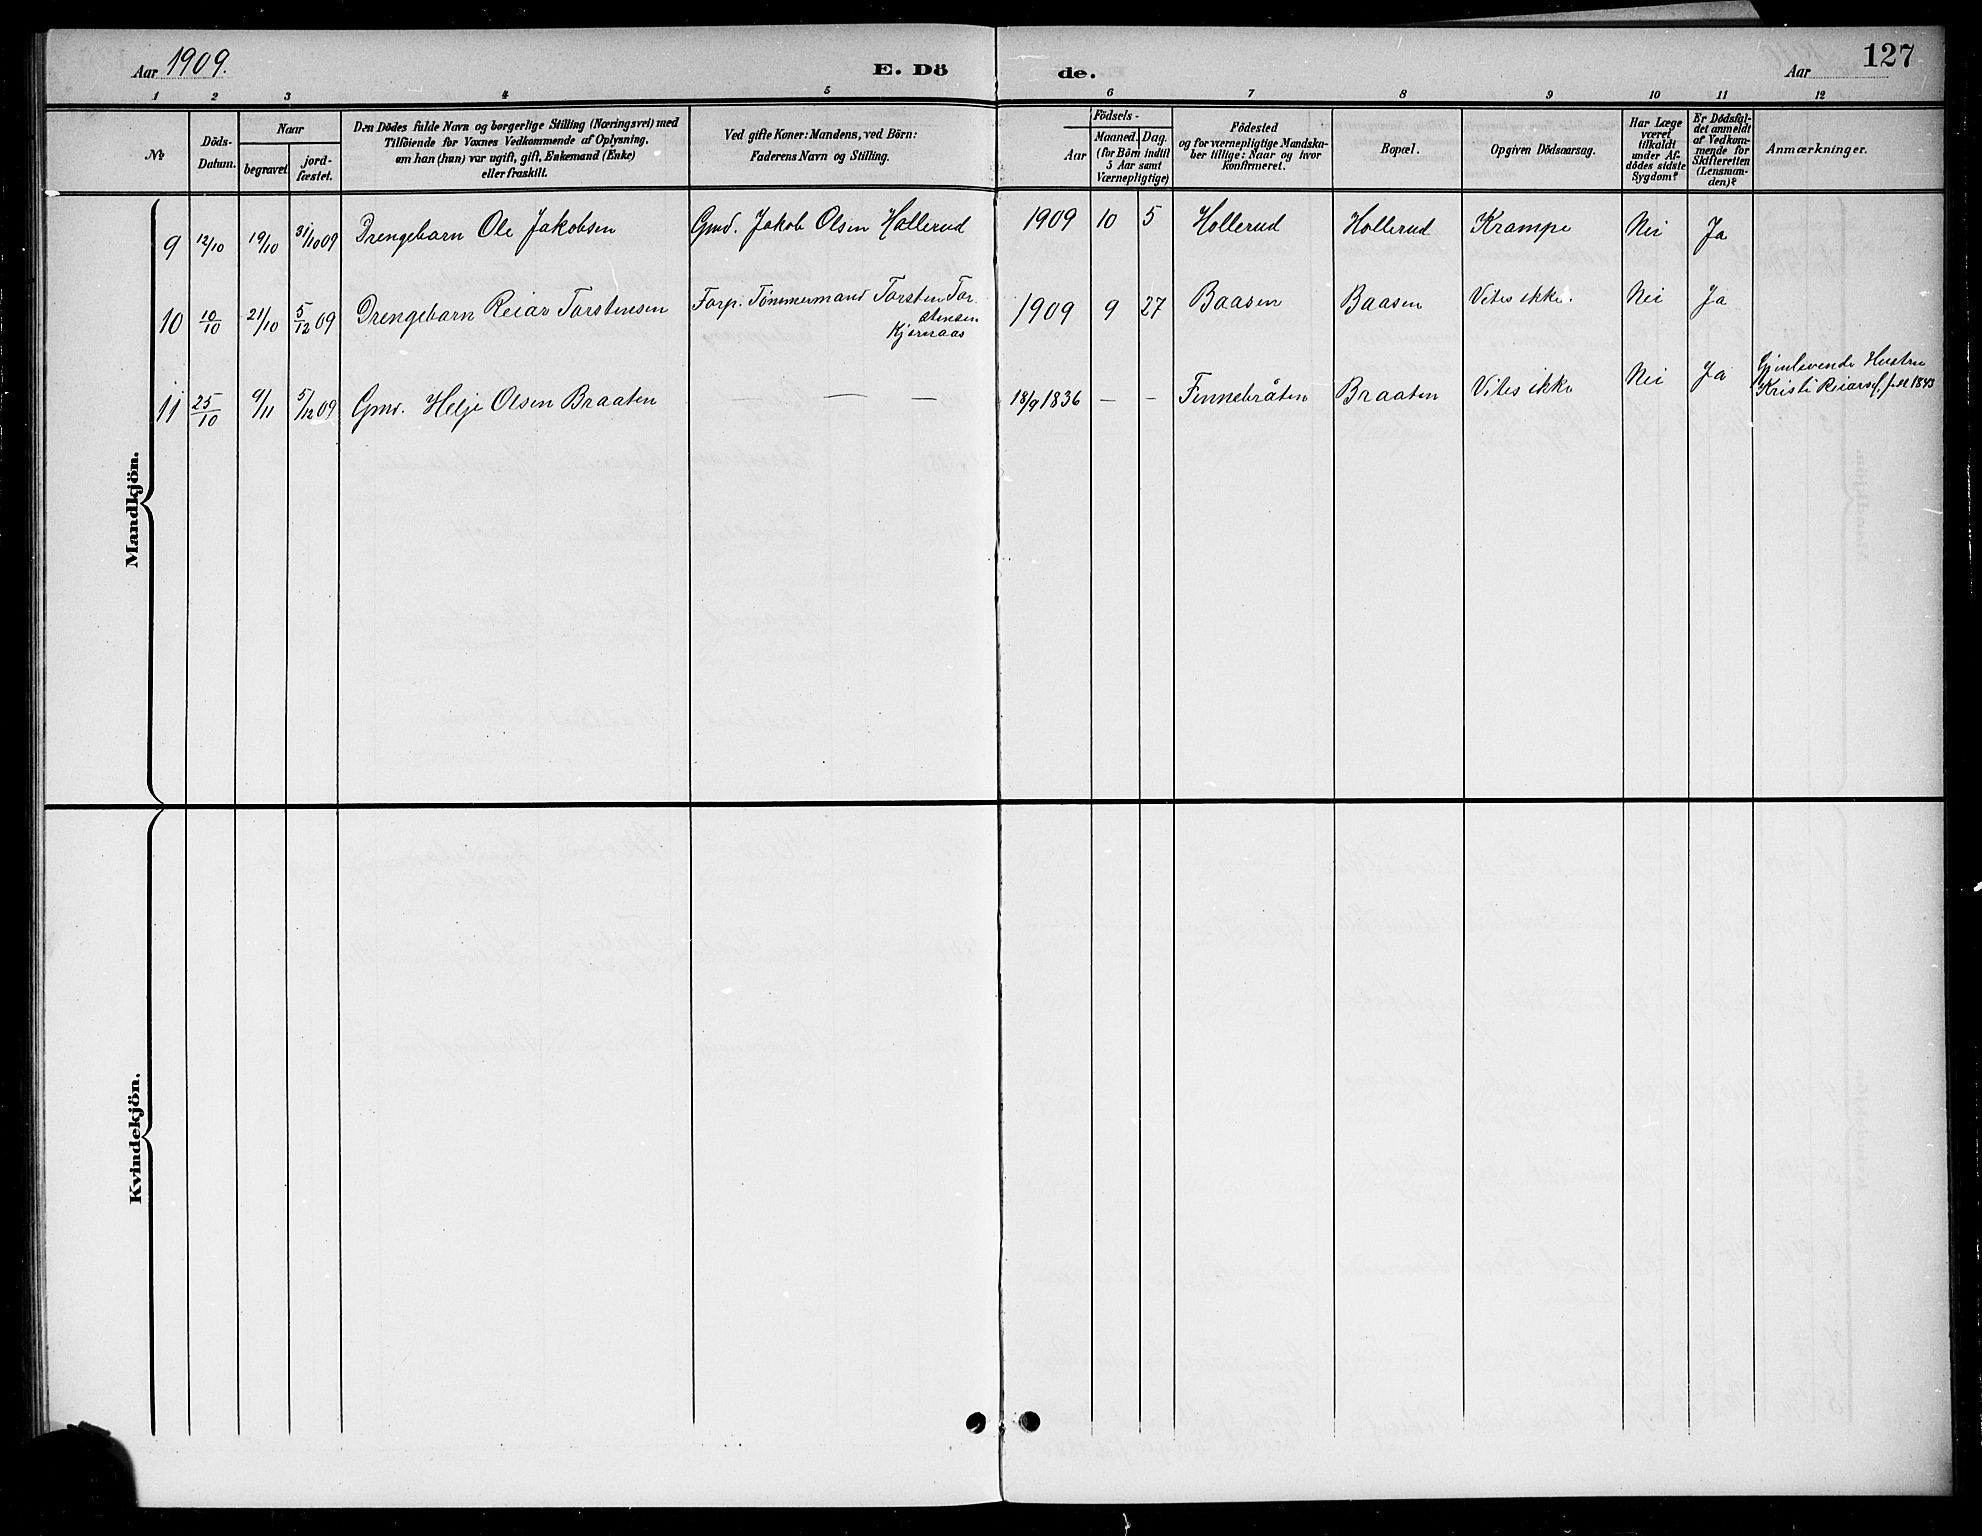 Aar 1909.
E. Dö
de.
Aar
127
1 2 3 4 5 6 7 8 9 10 11 12
№
Döds-
Datum.
Naar
begravet.
jord-
fæstet.
Den Dödes fulde Navn og borgerlige Stilling (Næringsvei) med
Tilföiende for Voxnes Vedkommende af Oplysning,
om han (hun) var ugift, gift, Enkemand (Enke)
eller fraskilt.
Ved gifte Koner: Mandens, ved Börn:
Faderens Navn og Stilling.
Födsels-
Aar
Maaned. Dag.
(for Börn indtil
5 Aar samt
Værnepligtige)
Födested
og for værnepligtige Mandska-
ber tillige: Naar og hvor
konfirmeret.
Bopæl.
Opgiven Dödsaarsag.
Har Læge
været
tilkaldt
under Af-
dödes sidste
Sygdom?
Er Dödsfal-
det anmeldt
af Vedkom-
mende for
Skifteretten
(Lensman-
den)?
Anmærkninger.
Mandkjön.
9 12/10 19/10 31/10 09 Drengebarn Ole Jakobsen Gmd. Jakob Olsen Hollerud 1909 10 5 Hollerud Hollerud Krampe Nei Ja
10 10/10 21/10 5/12 09 Drengebarn Reiar Torstensen Forp. Tömmermand Torsten Tor-
stensen
Kjørnaas
1909 9 27 Baasen Baasen Vites ikke. Nei Ja
11 25/10 9/11 5/12 09 Gmd. Helje Olsen Braaten — — — 18/9 1836 — — Finnebråten Braaten Vites ikke Nei Ja
Gjenlevende Hustru
Kristi Reiarsd. f. 1843
Kvindekjön.